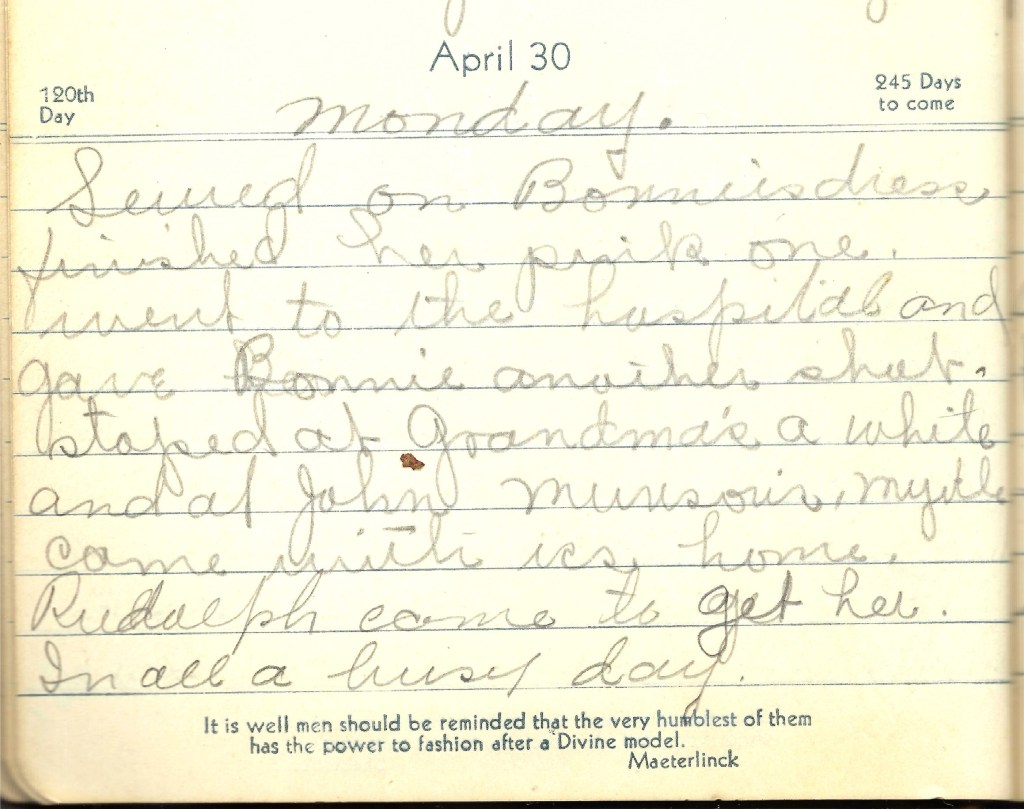 April 30
120th Day
245 Days to come
Monday.
Sewed on Bonnie's dress
finished her pink one.
went to the hospital and
gave Bonnie another shot.
stoped at Grandma's a while
and at John Munsons, Myrtle
came with us home.
Rudolph came to get her.
In all a busy day.
It is well men should be reminded that the very humblest of them
has the power to fashion after a Divine model.
Maeterlinck